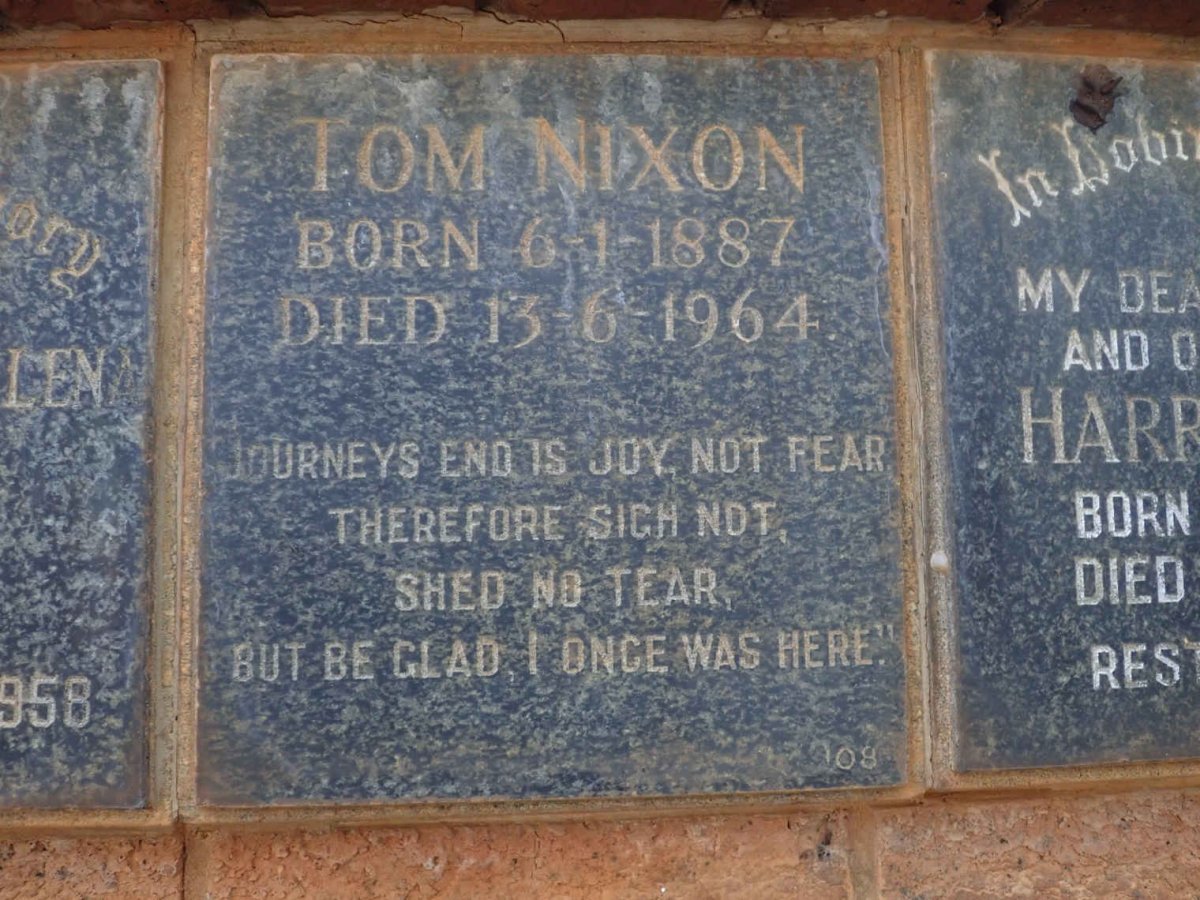 TOM NIXON
BORN 6-1-1887
DIED 13-6-1964
JOURNEYS END IS JOY, NOT FEAR
THEREFORE SIGH NOT,
SHED NO TEAR,
BUT BE GLAD, I ONCE WAS HERE."
108
1958
In
MY
AND
BORN
DIED